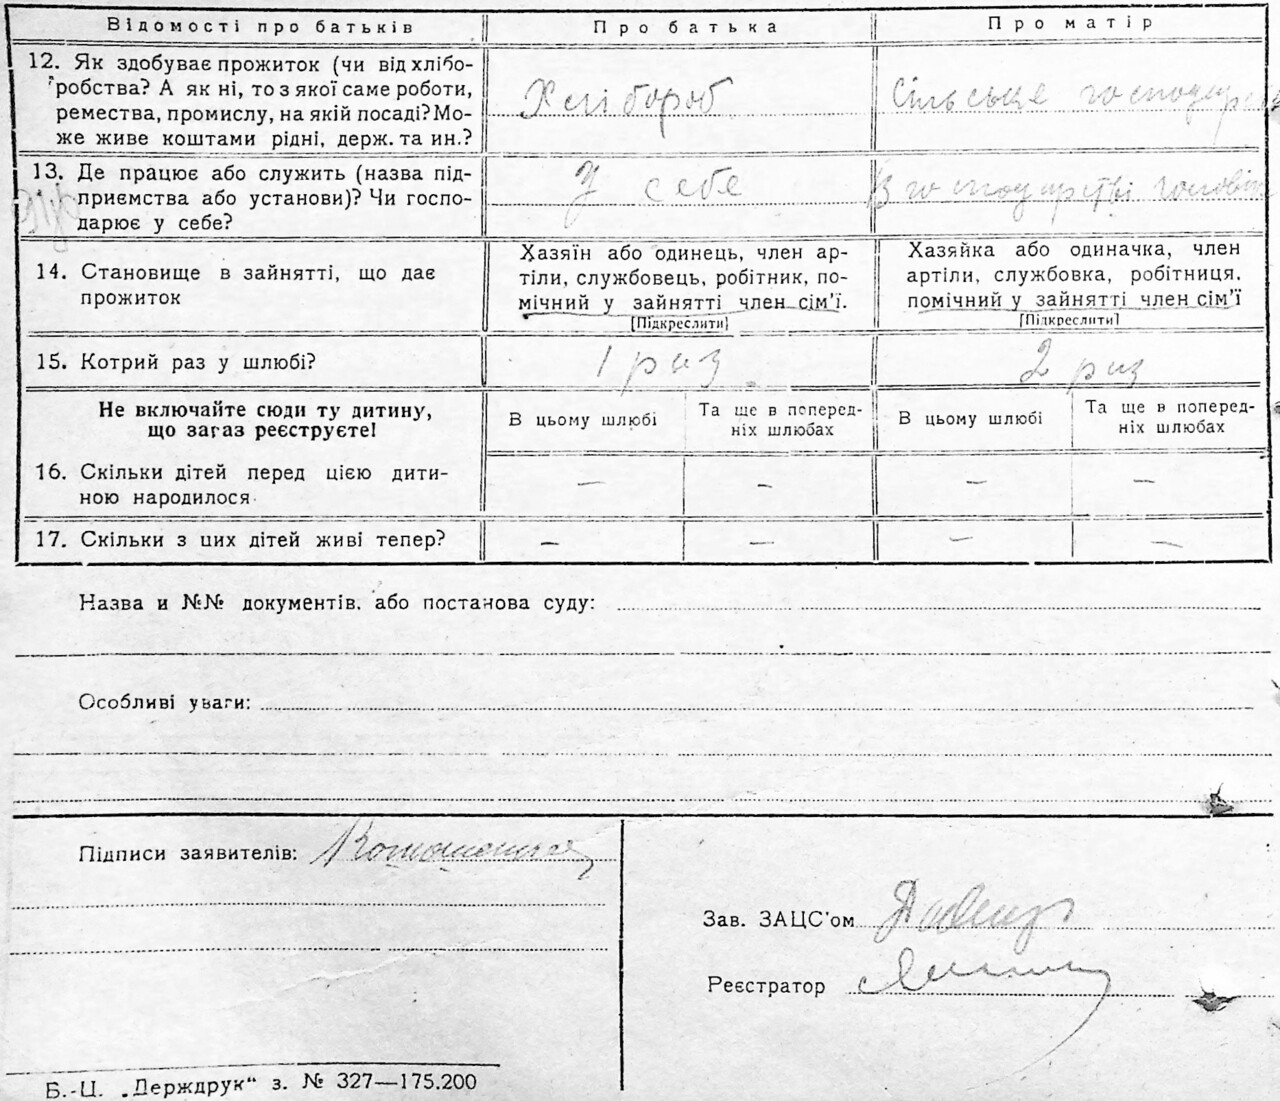 Відомості про батьків Про батька Про матір
12. Як здобуває прожиток (чи від хлібо-
робства? А як ні, то з якої саме роботи,
ремества, промислу, на якій посаді? Мо-
же живе коштами рідні, держ. та ин.?
Хлібороб
Сільське господарство
13. Де працює або служить (назва під-
приємства або установи)? Чи госпо-
дарює у себе?
У себе
В господарстві чоловіка
14. Становище в зайнятті, що дає
прожиток
Хазяїн або одинець, член ар-
тіли, службовець, робітник, по-
мічний у зайнятті член сім'ї.
[Підкреслити]
Хазяйка або одиначка, член
артіли, службовка, робітниця,
помічний у зайнятті член сім'ї
[Підкреслити]
15. Котрий раз у шлюбі?
1 раз
2 раз
Не включайте сюди ту дитину,
що загаз реєструєте!
В цьому шлюбі
Та ще в поперед-
ніх шлюбах
В цьому шлюбі
Та ще в поперед-
ніх шлюбах
16. Скільки дітей перед цією дити-
ною народилося
— — — —
17. Скільки з цих дітей живі тепер?
— — — —
Назва и №№ документів, або постанова суду:
Особливі уваги:
Підписи заявителів:
Зав. ЗАЦС'ом
Реєстратор
Б.-Ц. „Держдрук“ з. № 327—175.200